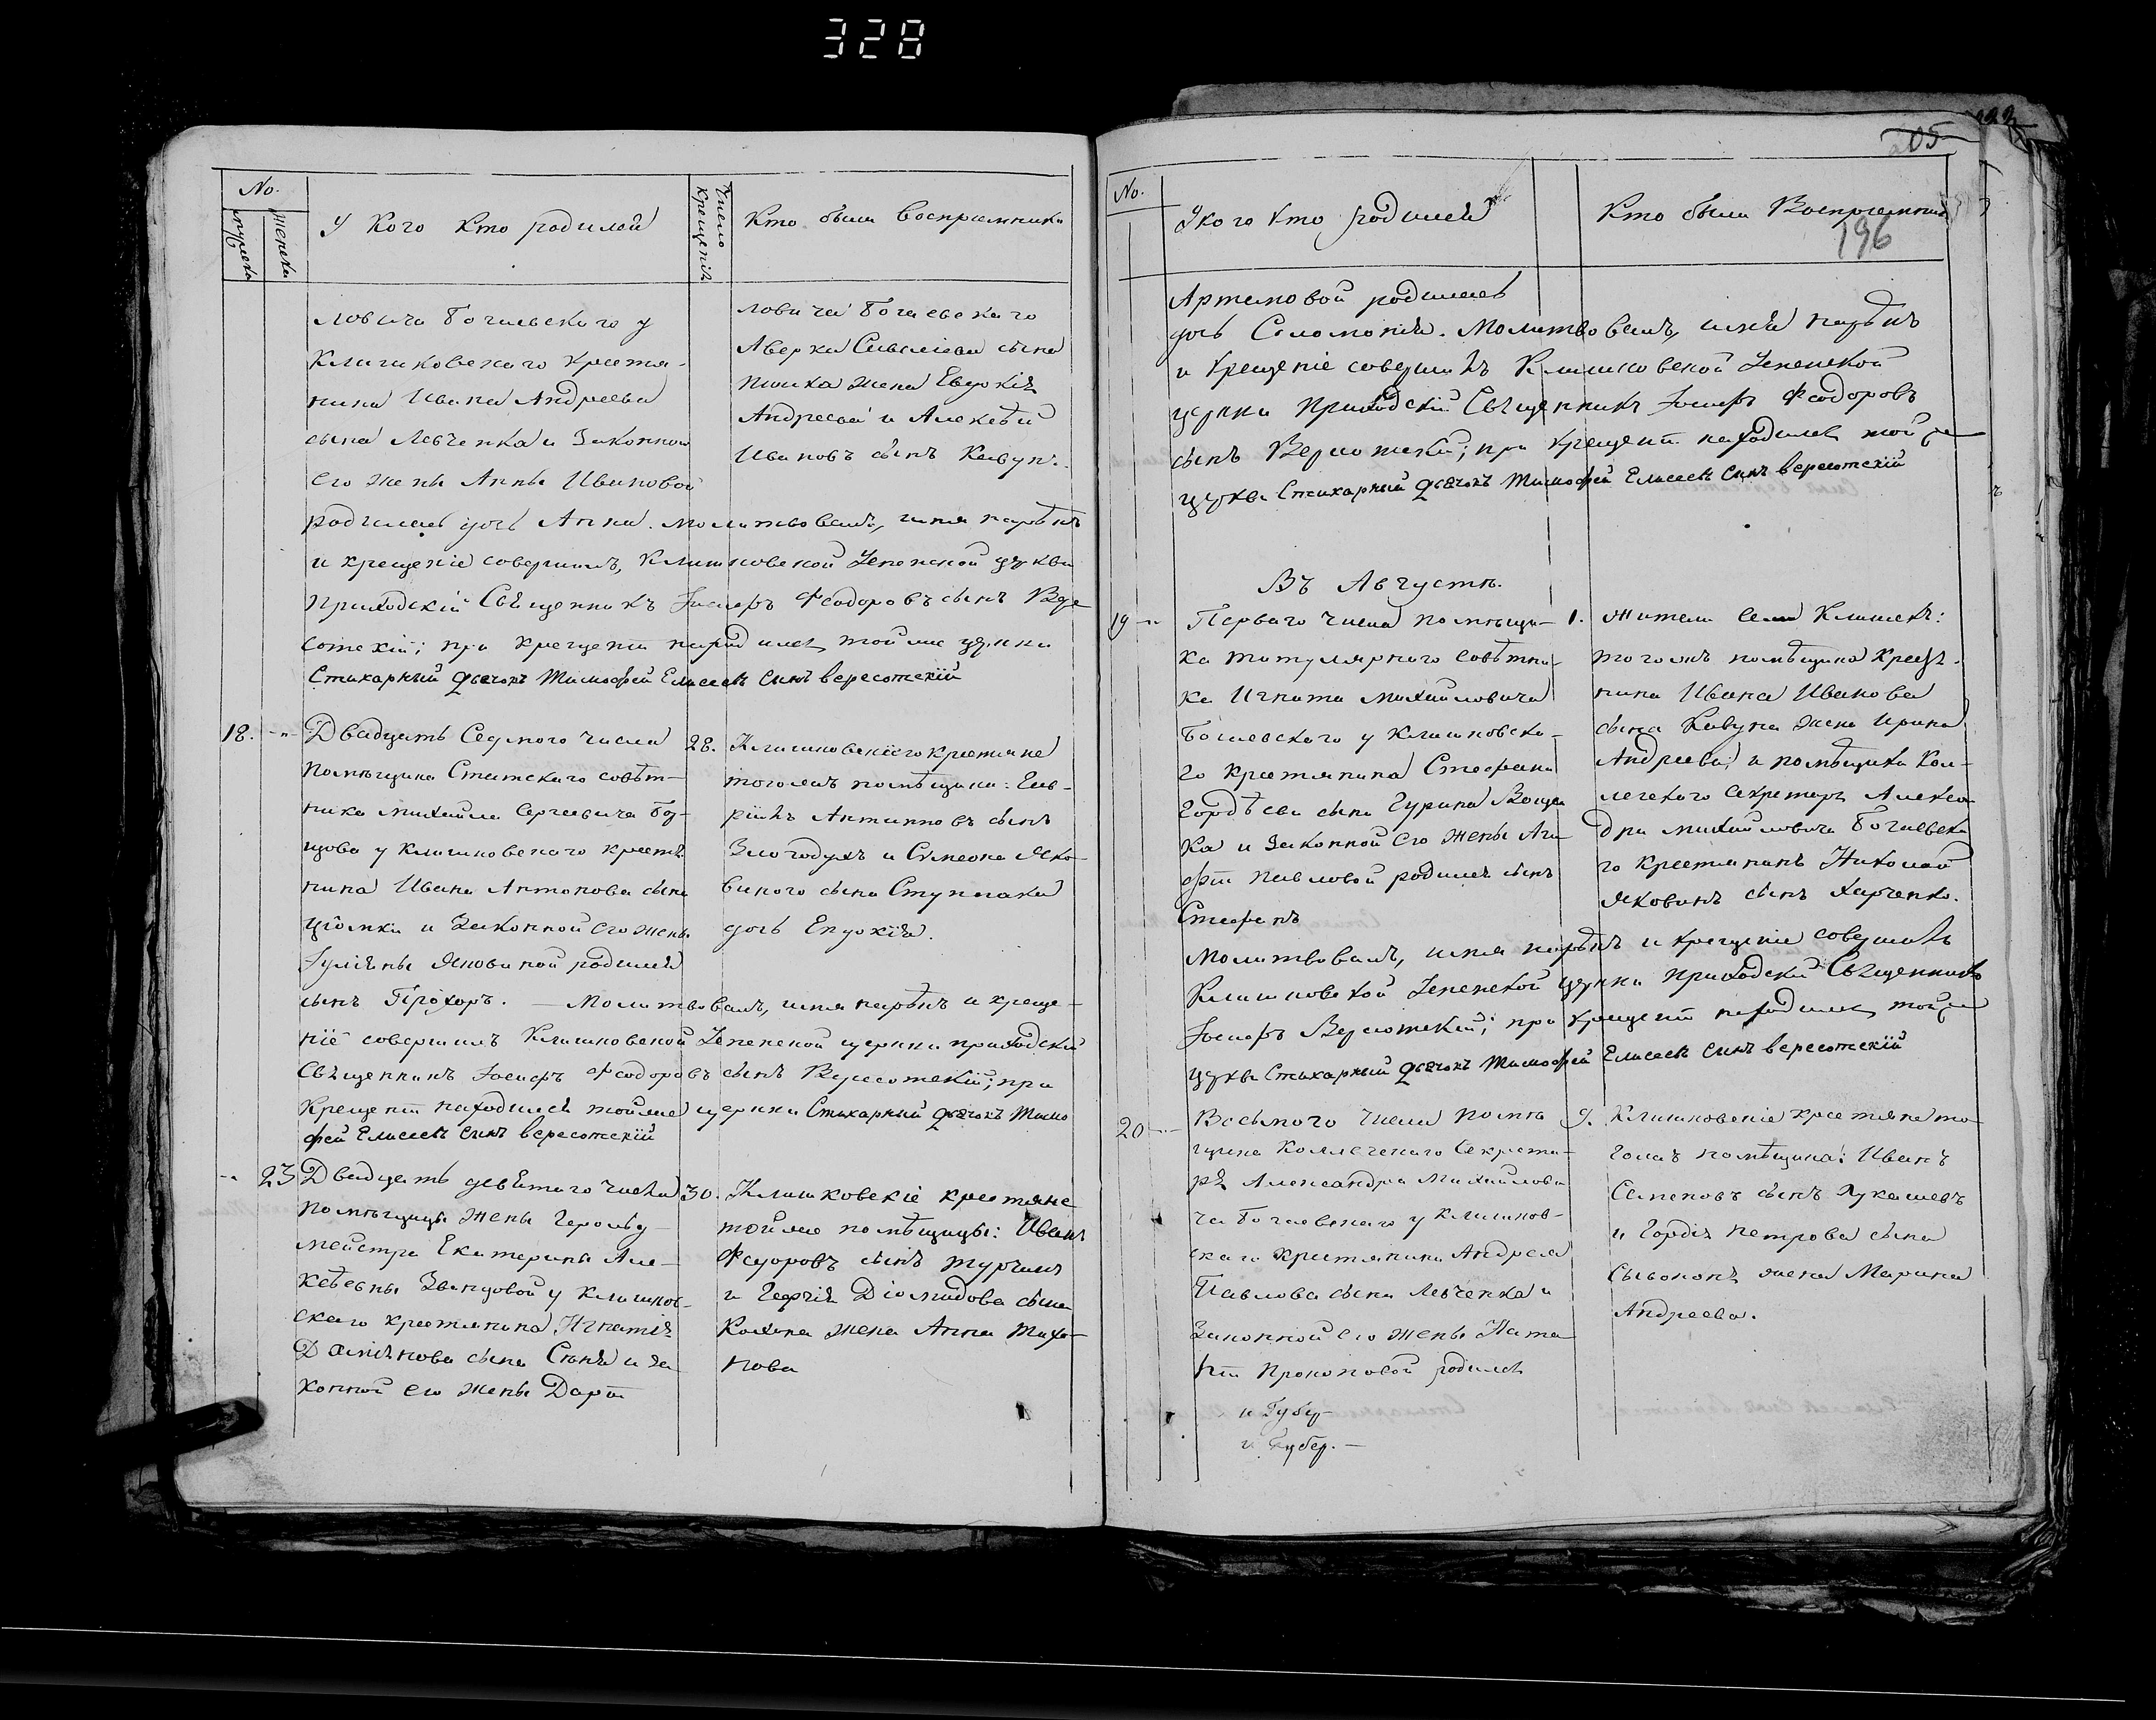 328
No.
мужеска
женска
У Кого Кто родился
Число Крещенія
Кто были воспріемники
ловича Богаевского у
Клишковского крестья-
нина Ивана Андреева
сына Левченка и Законной
его жены Анны Ивановой
родилась дочь Анна. молитвовалъ, имя нарѣкъ
и крещеніе совершилъ, Клишковской Успенской церкви
Приходскій Священникъ Іосифъ Феодоровъ сынъ Вере
сотскій; при крещеніи находился тойже церкви
Стихарный дьячокъ Тимофей Елисеевъ синъ вересотскій
ловича Богаевскаго
Аверка Савеліева сына
жена Евдокія
Андреева и Алексѣй
Ивановъ сынъ Кавун.
18.
Двадцять Седмого числа
Помѣщика Статскаго совѣт-
ника михайла Сергеевича
у Клишковского крестья
нина Ивана Антонова сына
и Законной его жены
Іуліяны Яковиной родился
сынъ Прохоръ. — Молитвовалъ, имя нарѣкъ и креще-
ніе совершилъ Клишковской Успенской церкви приходскій
Священникъ Іосифъ Феодоровъ сынъ Вересотскій; при
Крещеніи находился тойже церкви Стихарный дьячокъ Тимо
фей Елисеевъ синъ вересотскій
28.
Клишковскіе крестьяне
тогожъ помѣщика: Гав-
ріилъ Антиповъ сынъ
Злогодухъ и Симеона Яко-
виного сына Ступака
дочь Евдокія.
23
Двадцать девятого числа
помѣщицы жены
мейстра Екатерины Але-
ксѣевны у Клишков-
скаго крестьянина Игнатія
Даміянова сына и за
конной его жены Дарїи
30.
Клишковскіе крестьяне
тойже помѣщицы: Иванъ
Федоровъ сынъ Турчинъ
и Георгія Діомидова сына
жена Анна Тихо-
нова
205
196
No.
У кого кто родился
Кто были Воспріемники
Артемовой родилась
дочь Соломонія. Молитвовалъ, имя нарѣкъ
и крещеніе совершилъ Клишковской Успенской
церкви Приходскій Священникъ Іосифъ Феодоровъ
сынъ Вересотскій; при крещеніи находился тойже
церкви Стихарный дьячокъ Тимофей Елисеевъ синъ вересотскій
Въ Августѣ.
19
Перваго числа помѣщи-
ка титулярного совѣтни-
ка Игната михайловича
Богаевского у Клишковско-
го крестьянина Стефана
Гордѣева сына Гурина
ка и Законной его жены Ага
фїи Павловой родился сынъ
Стефанъ
Молитвовалъ, имя нарѣкъ и крещеніе совершилъ
Клишковской Успенской церкви приходскій Священникъ
Іосифъ Вересотскій; при крещеніи находился тойже
церкви Стихарный дьячокъ Тимофей Елисеевъ синъ вересотскій
1.
Жители села Клишекъ:
тогожъ помѣщика крестья-
нина Ивана Иванова
сына Кавуна жена Ирина
Андреева; и помѣщика Кол-
лежского Секретаря Алекса
ндра михайловича Богаевска
го крестьянинъ Николай
Яковинъ сынъ Харченко.
20
Восьмого числа помѣ
щика Коллежского Секрета-
ря Александра Михайлови
ча Богаевскаго у Клишков-
скаго крестьянина Андрея
Павлова сына Левченка и
Законной его жены Ната
лїи Прокоповой родился
и Губер-
и Губер. —
9.
Клишковскіе крестьяне то-
гожъ помѣщика: Иванъ
Семеновъ сынъ Лукашевъ
и Гордія Петрова сына
жена Марина
Андреева.